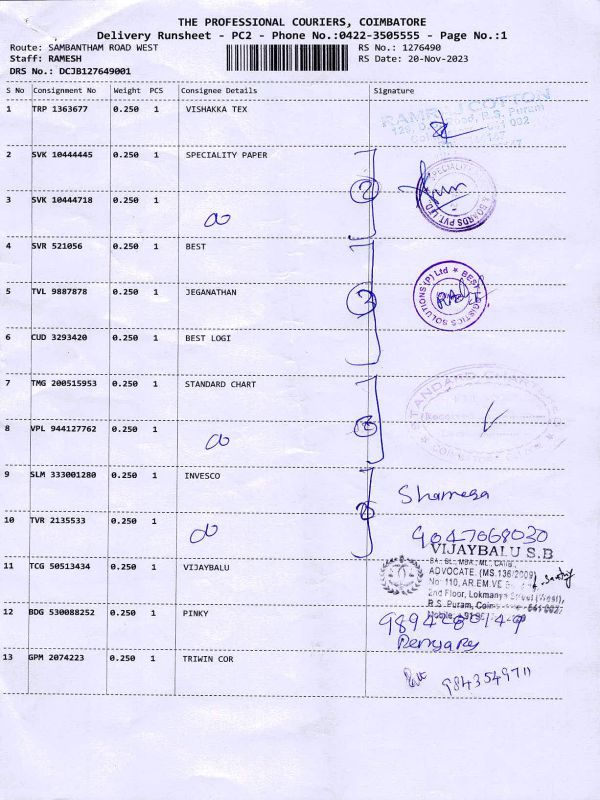 THE PROFESSIONAL COURIERS, COIMBATORE
Delivery Runsheet - PC2 - Phone No.:0422-3505555 - Page No.:1
Route: SAMBANTHAM ROAD WEST RS No.: 1276490
Staff: RAMESH RS Date: 20-Nov-2023
DRS No.: DCJB127649001
S No Consignment No Weight PCS Consignee Details Signature
1 TRP 1363677 0.250 1 VISHAKKA TEX
RAMRAJ COTTON
2 SVK 10444445 0.250 1 SPECIALITY PAPER
2
3 SVK 10444718 0.250 1
SPECIALITY & BOARDS PVT LTD.
4 SVR 521056 0.250 1 BEST
BEST LOGISTICS SOLUTIONS (P) Ltd
5 TVL 9887878 0.250 1 JEGANATHAN
6 CUD 3293420 0.250 1 BEST LOGI
7 TMG 200515953 0.250 1 STANDARD CHART
8 VPL 944127762 0.250 1
9 SLM 333001280 0.250 1 INVESCO
10 TVR 2135533 0.250 1
9047668030
11 TCG 50513434 0.250 1 VIJAYBALU
VIJAYBALU S.B
ADVOCATE (MS.136/2009)
No: 110, AR.EM.VE
2nd Floor, Lokmanya Street (West),
R.S. Puram,
12 BDG 530088252 0.250 1 PINKY
13 GPM 2074223 0.250 1 TRIWIN COR
9843549711